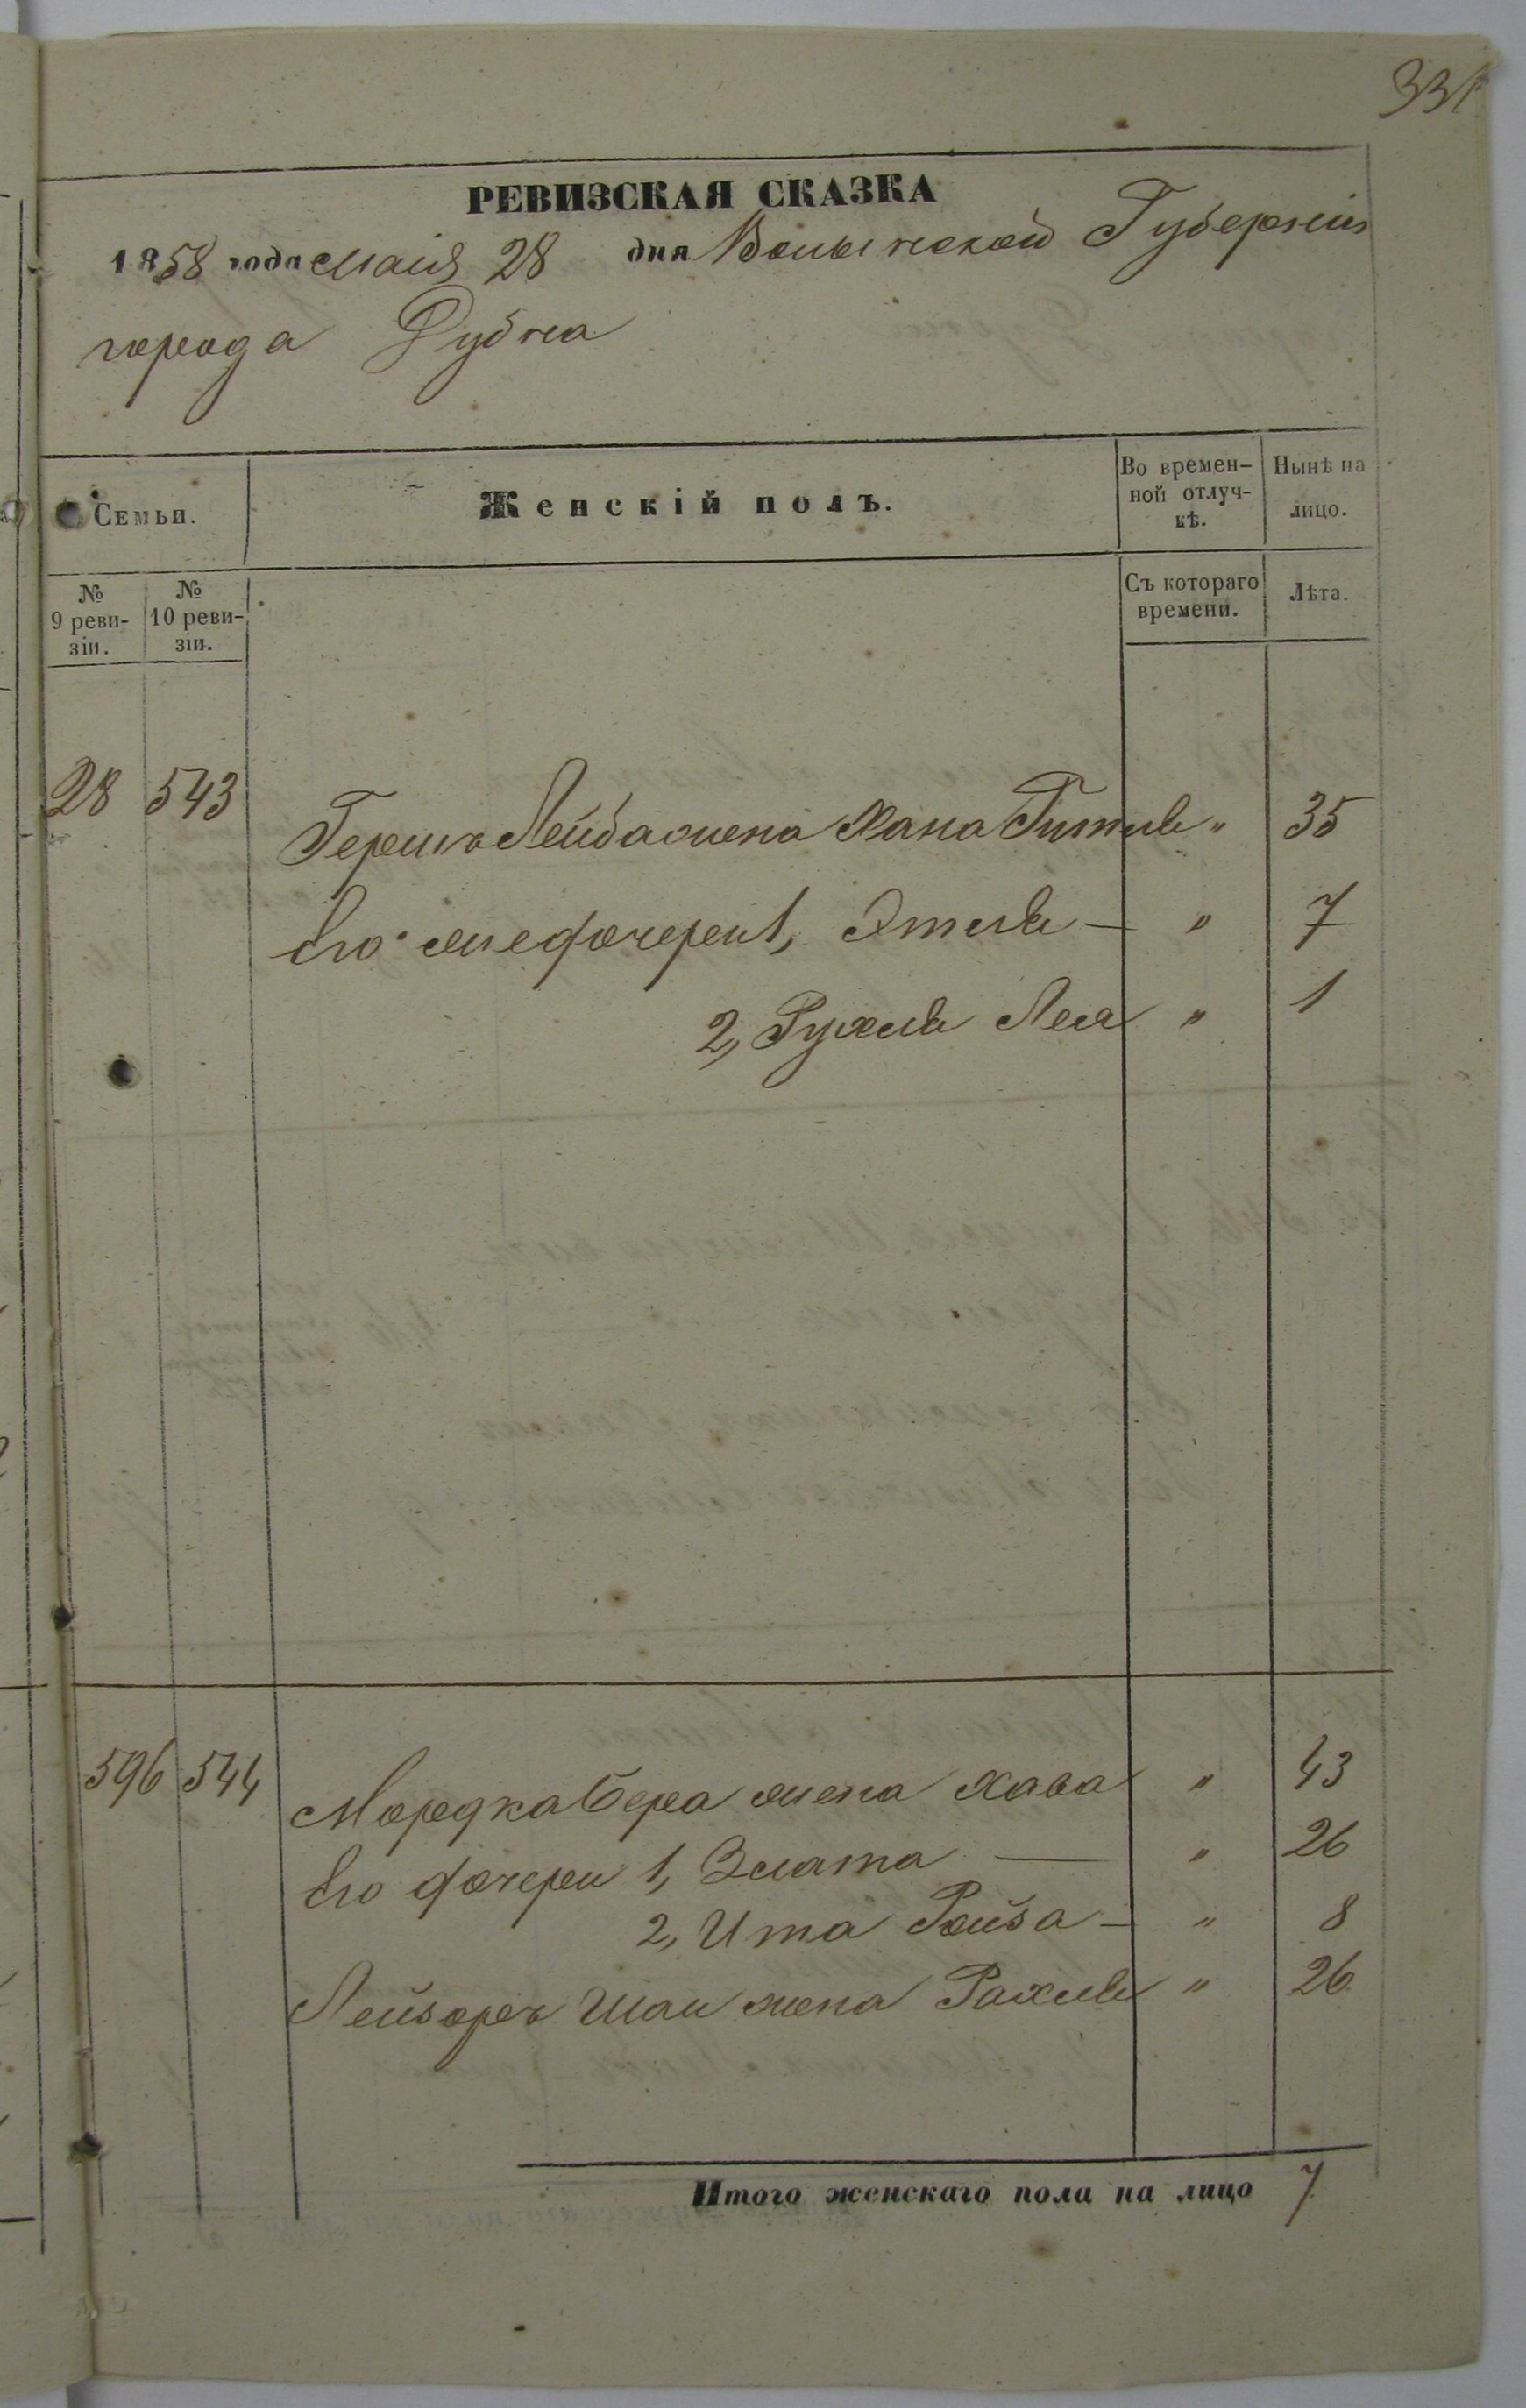 331
РЕВИЗСКАЯ СКАЗКА
1858 года Маія 28 дня Волынской Губерніи
города Дубна
Семьи. Женскій полъ. Во времен- ной отлуч- кѣ. Нынѣ на лицо.
№ 9 реви- зіи. № 10 реви- зіи. Съ котораго времени. Лѣта.
28 543 Гершъ Лейба жена Хана Гитля " 35
Его же дочери 1, Этля — " 7
2, Рухля Лея " 1
596 544 Мордка Бера жена Хава " 43
Его дочери 1, Злата — " 26
2, Ита Ройза — " 8
Лейзоръ Шаи жена Рахля " 26
Итого женскаго пола на лицо 7